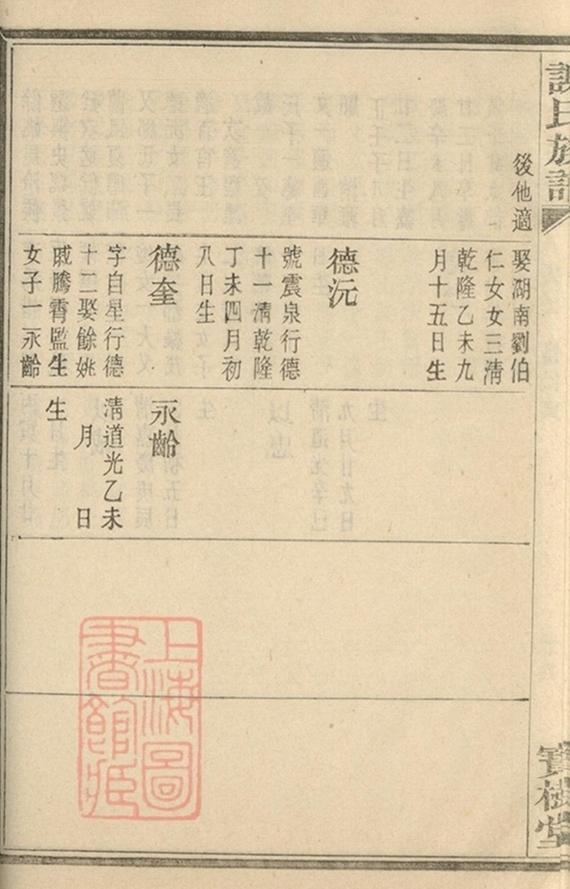 謝氏族譜
寶樹堂
後他適
娶湖南劉伯
仁女女三清
乾隆乙未九
月十五日生
德沅
號震泉行德
十一清乾隆
丁未四月初
八日生
德奎
字自星行德
十二娶餘姚
戚騰霄監生
女子一永齡
永齡
清道光乙未
月 日
生
上海圖
書館藏